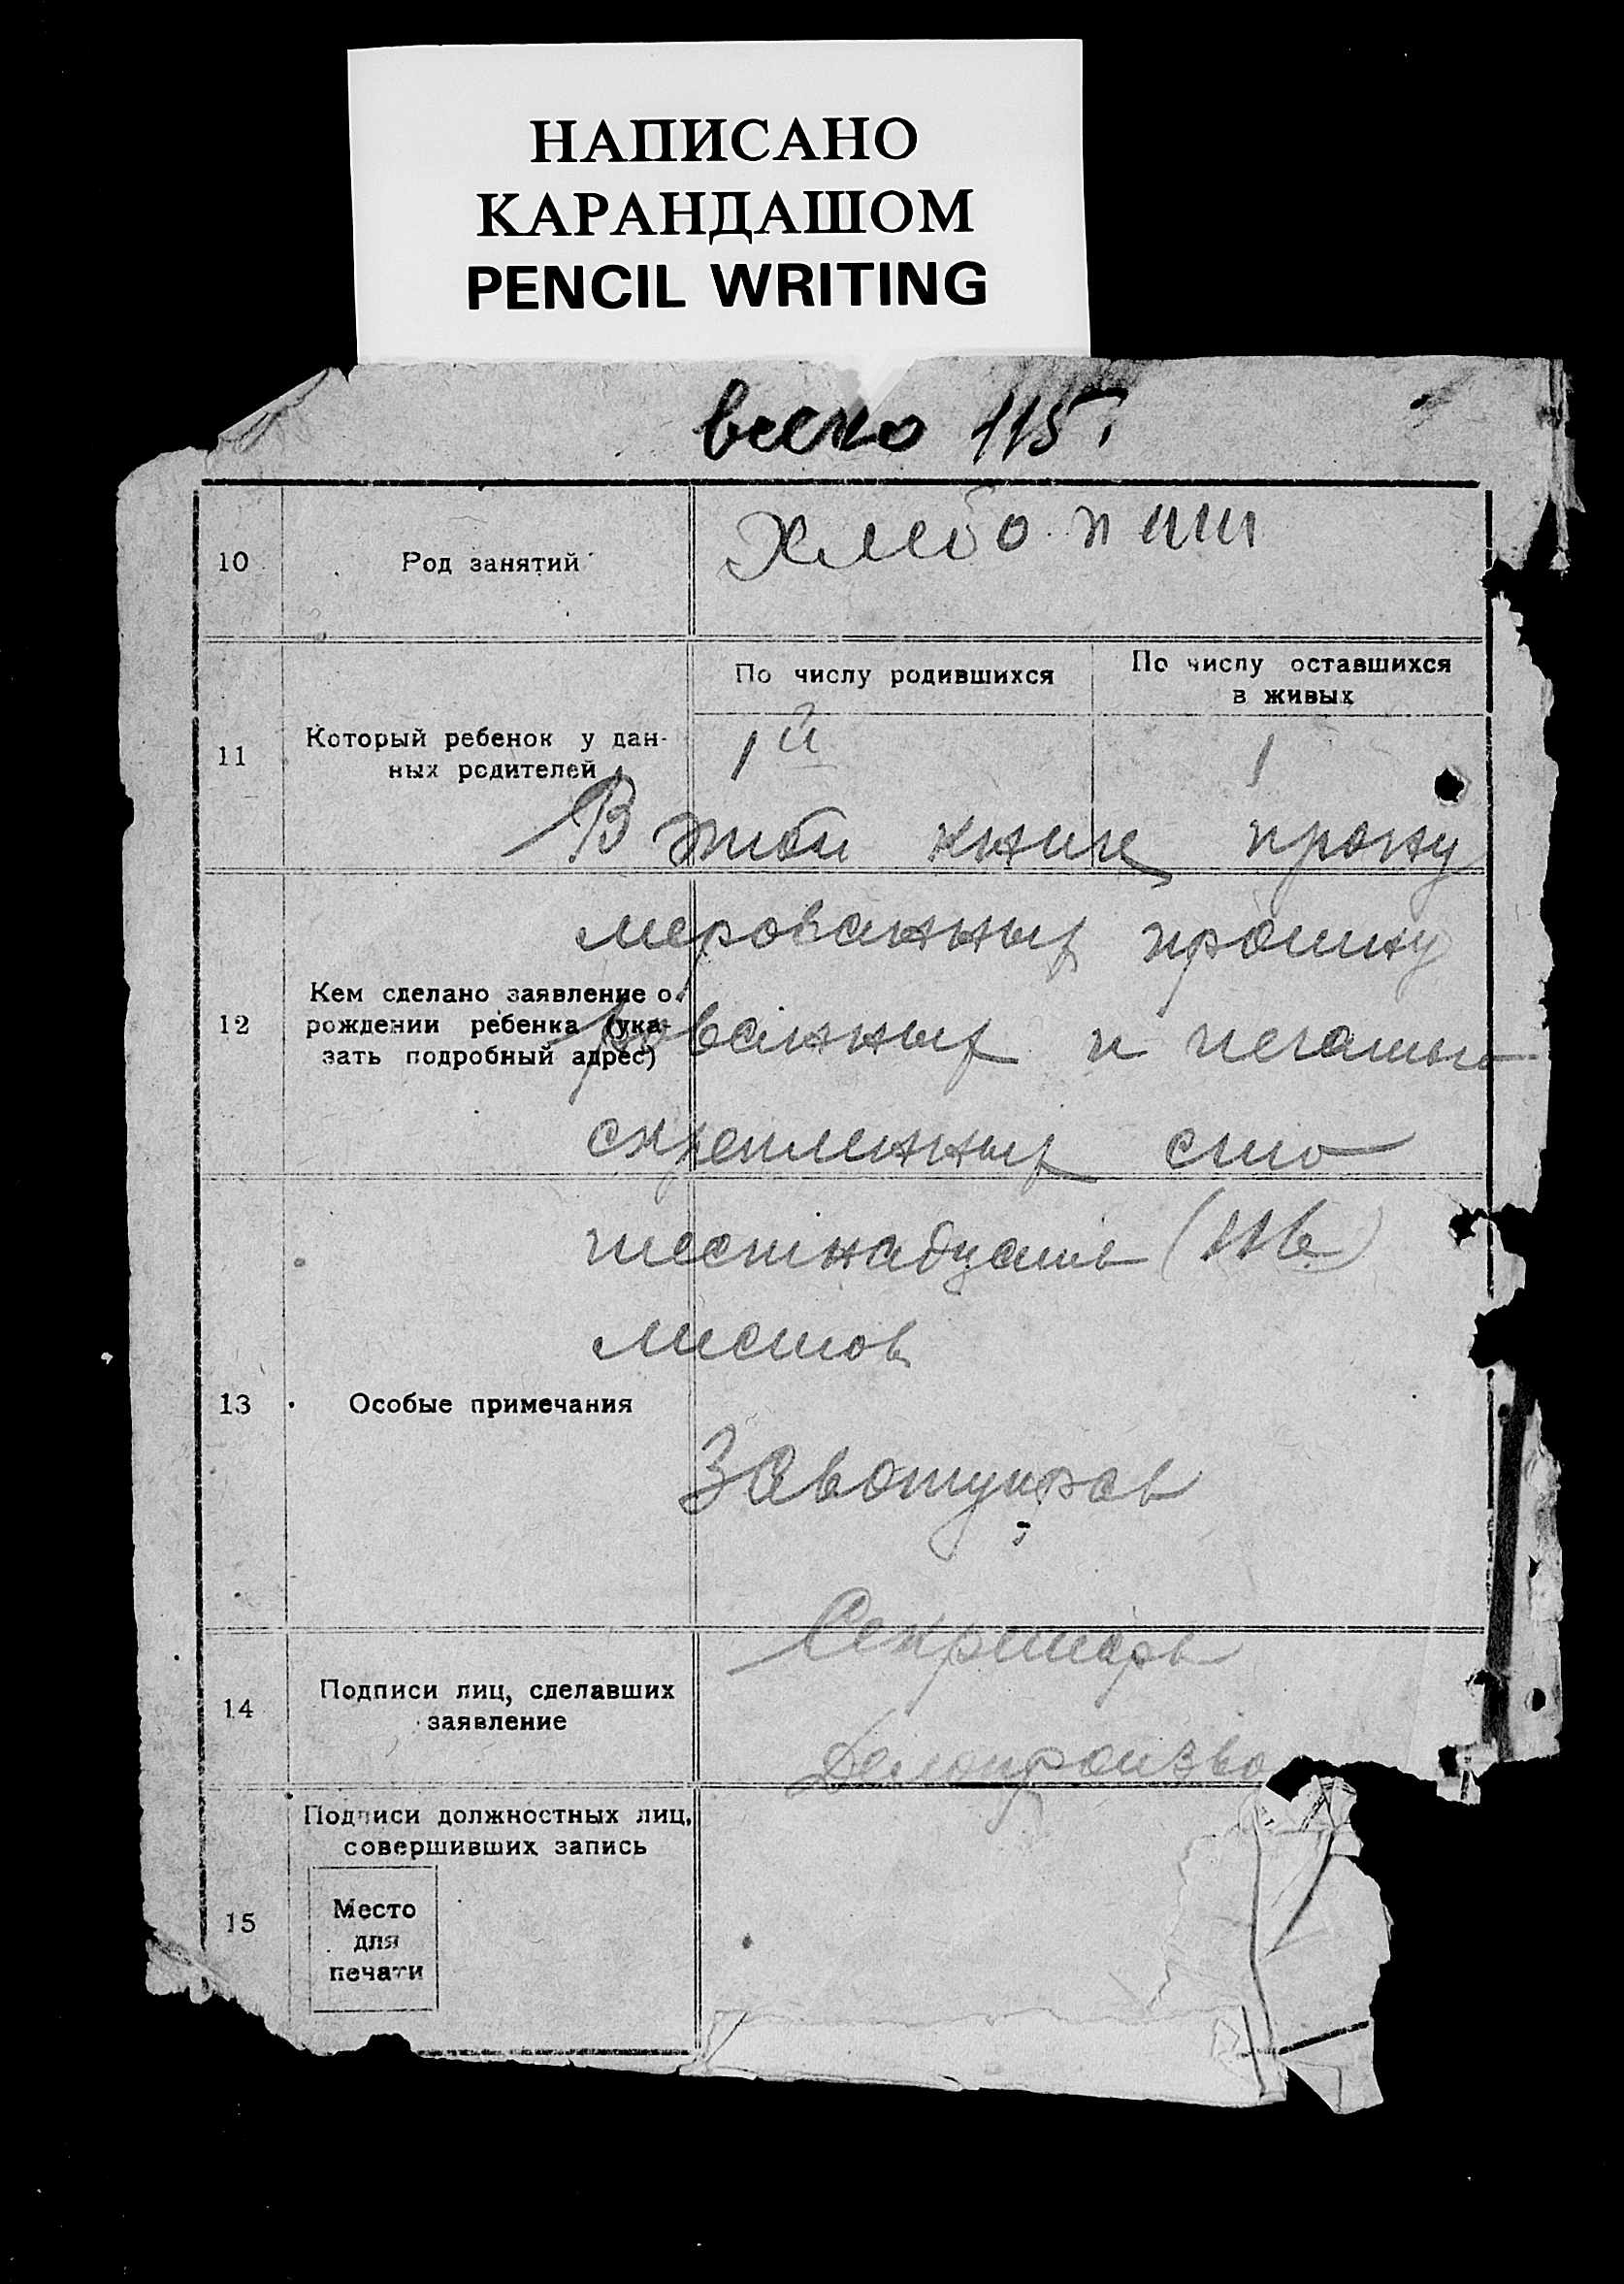 НАПИСАНО
КАРАНДАШОМ
PENCIL WRITING
всего 115.
10 Род занятий Хлебопаш
11 Который ребенок у дан-
ных родителей
По числу родившихся
По числу оставшихся
в живых
1й 1
В этой книге прону
мерованных прошну
12 Кем сделано заявление о
рождении ребенка (ука-
зать подробный адрес)
рованных и печатью
скрепленных сто
шестнадцать (116)
листов
13 Особые примечания
Завотуправ
Секретарь
14 Подписи лиц, сделавших
заявление
Делопроизво
15 Подписи должностных лиц,
совершивших запись
Место
для
печати